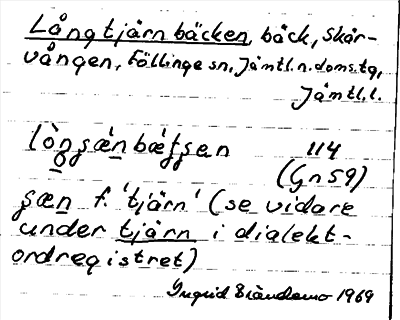 Långtjärnbäcken, bäck, Skär-
vången, Föllinge sn, Jämtl. n. doms. tg,
Jämtl. l.
lò̀ŋsæ̀nbæ̀ʃʃen 114
(Gn 59)
ʃæn f. 'tjärn' (se vidare
under tjärn i dialekt-
ordregistret)
Ingrid 1969